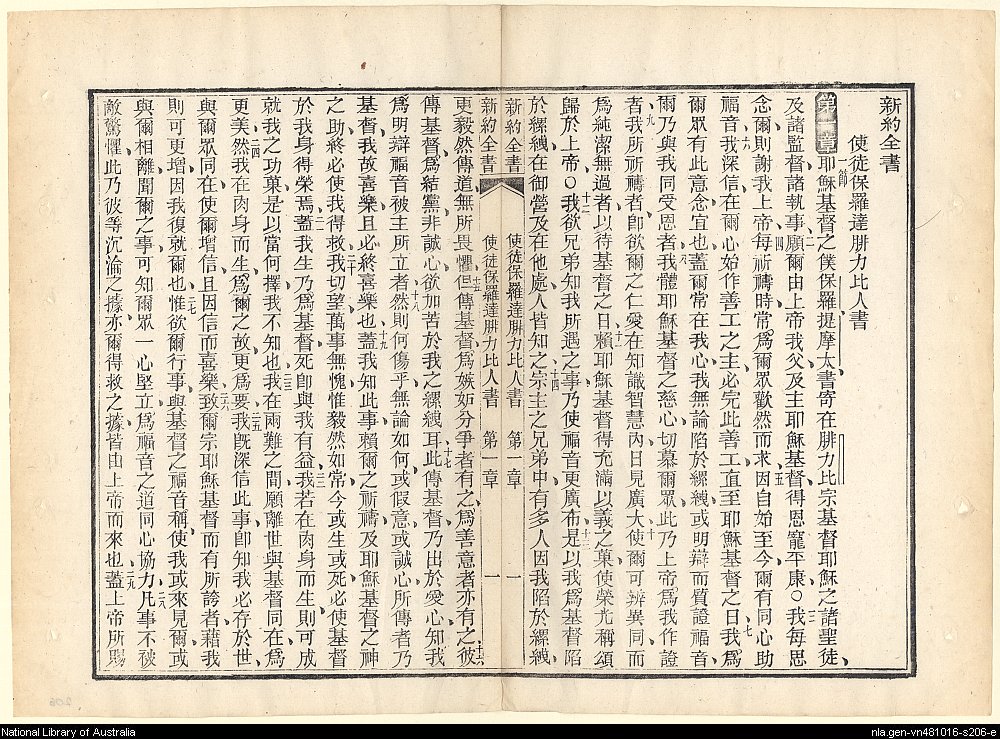 新約全書
使徒保羅達腓力比人書
第一章 一節 耶穌基督之僕保羅提摩太書寄在腓力比宗基督耶穌之諸聖徒
及諸監督諸執事 二 願爾由上帝我父及主耶穌基督得恩寵平康○ 三 我每思
念爾則謝我上帝 四 每祈禱時常爲爾眾歡然而求 五 因自始至今爾有同心助
福音 六 我深信在爾心始作善工之主必完此善工直至耶穌基督之日 七 我爲
爾眾有此意念宜也蓋爾常在我心我無論陷於縲絏或明辯而質證福音
爾乃與我同受恩者 八 我體耶穌基督之慈心切慕爾眾此乃上帝爲我作證
者 九 我所祈禱者卽欲爾之仁愛在知識智慧內日見廣大 十 使爾可辨異同而
爲純潔無過者以待基督之日 十一 賴耶穌基督得充滿以義之菓使榮光稱頌
歸於上帝○ 十二 我欲兄弟知我所遇之事乃使福音更廣布 十三 是以我爲基督陷
於縲絏在御營及在他處人皆知之 十四 宗主之兄弟中有多人因我陷於縲絏
新約全書 使徒保羅達腓力比人書 第一章 一
新約全書 使徒保羅達腓力比人書 第一章 一
更毅然傳道無所畏懼 十五 但傳基督爲嫉妒分爭者有之爲善意者亦有之 十六 彼
傳基督爲結黨非誠心欲加苦於我之縲絏耳 十七 此傳基督乃出於愛心知我
爲明辯福音被主所立者 十八 然則何傷乎無論如何或假意或誠心所傳者乃
基督我故喜樂且必終喜樂也 十九 蓋我知此事賴爾之祈禱及耶穌基督之神
之助終必使我得救 二十 我切望萬事無愧惟毅然如常今或生或死必使基督
於我身得榮焉 二一 蓋我生乃爲基督死卽與我有益 二二 我若在肉身而生則可成
就我之功菓是以當何擇我不知也 二三 我在兩難之間願離世與基督同在爲
更美 二四 然我在肉身而生爲爾之故更爲要 二五 我旣深信此事卽知我必存於世
與爾眾同在使爾增信且因信而喜樂 二六 致爾宗耶穌基督而有所誇者藉我
則可更增因我復就爾也 二七 惟欲爾行事與基督之福音稱使我或來見爾或
與爾相離聞爾之事可知爾眾一心堅立爲福音之道同心協力 二八 凡事不被
敵驚懼此乃彼等沉淪之據亦爾得救之據皆由上帝而來也 二九 蓋上帝所賜
National Library of Australia
nla.gen-vn481016-s206-e